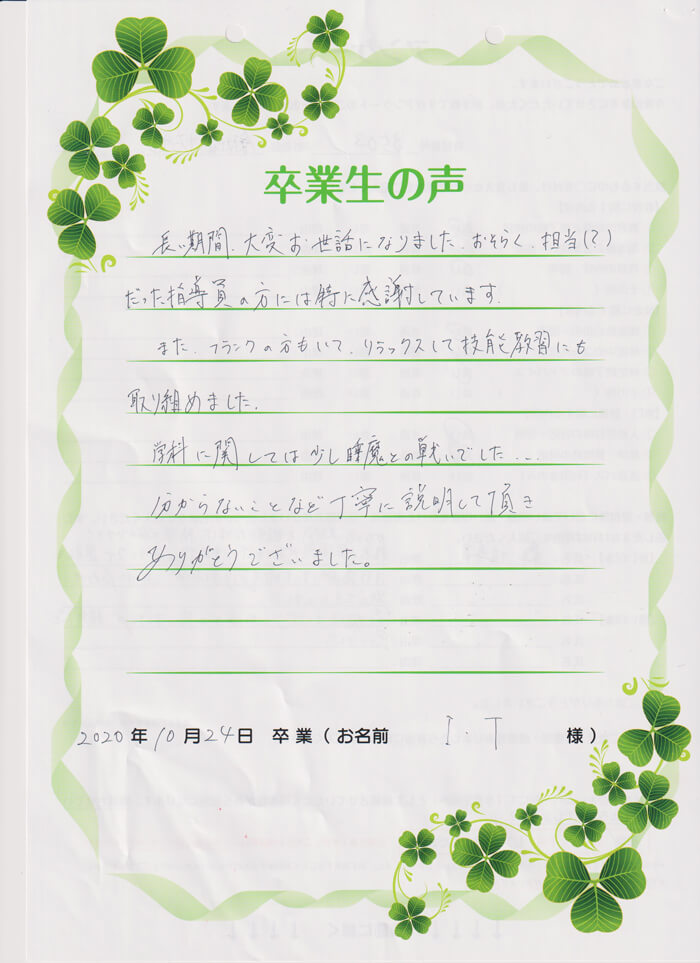 卒業生の声
長い期間、大変お世話になりました。おそらく、担当(?)
だった指導員の方には特に感謝しています。
また、フランクの方もいて、リラックスして技能教習にも
取り組めました。
学科に関しては少し睡魔との戦いでした...
分からないことなど丁寧に説明して頂き
ありがとうございました。
2020年10月24日 卒業(お名前 I.T 様)